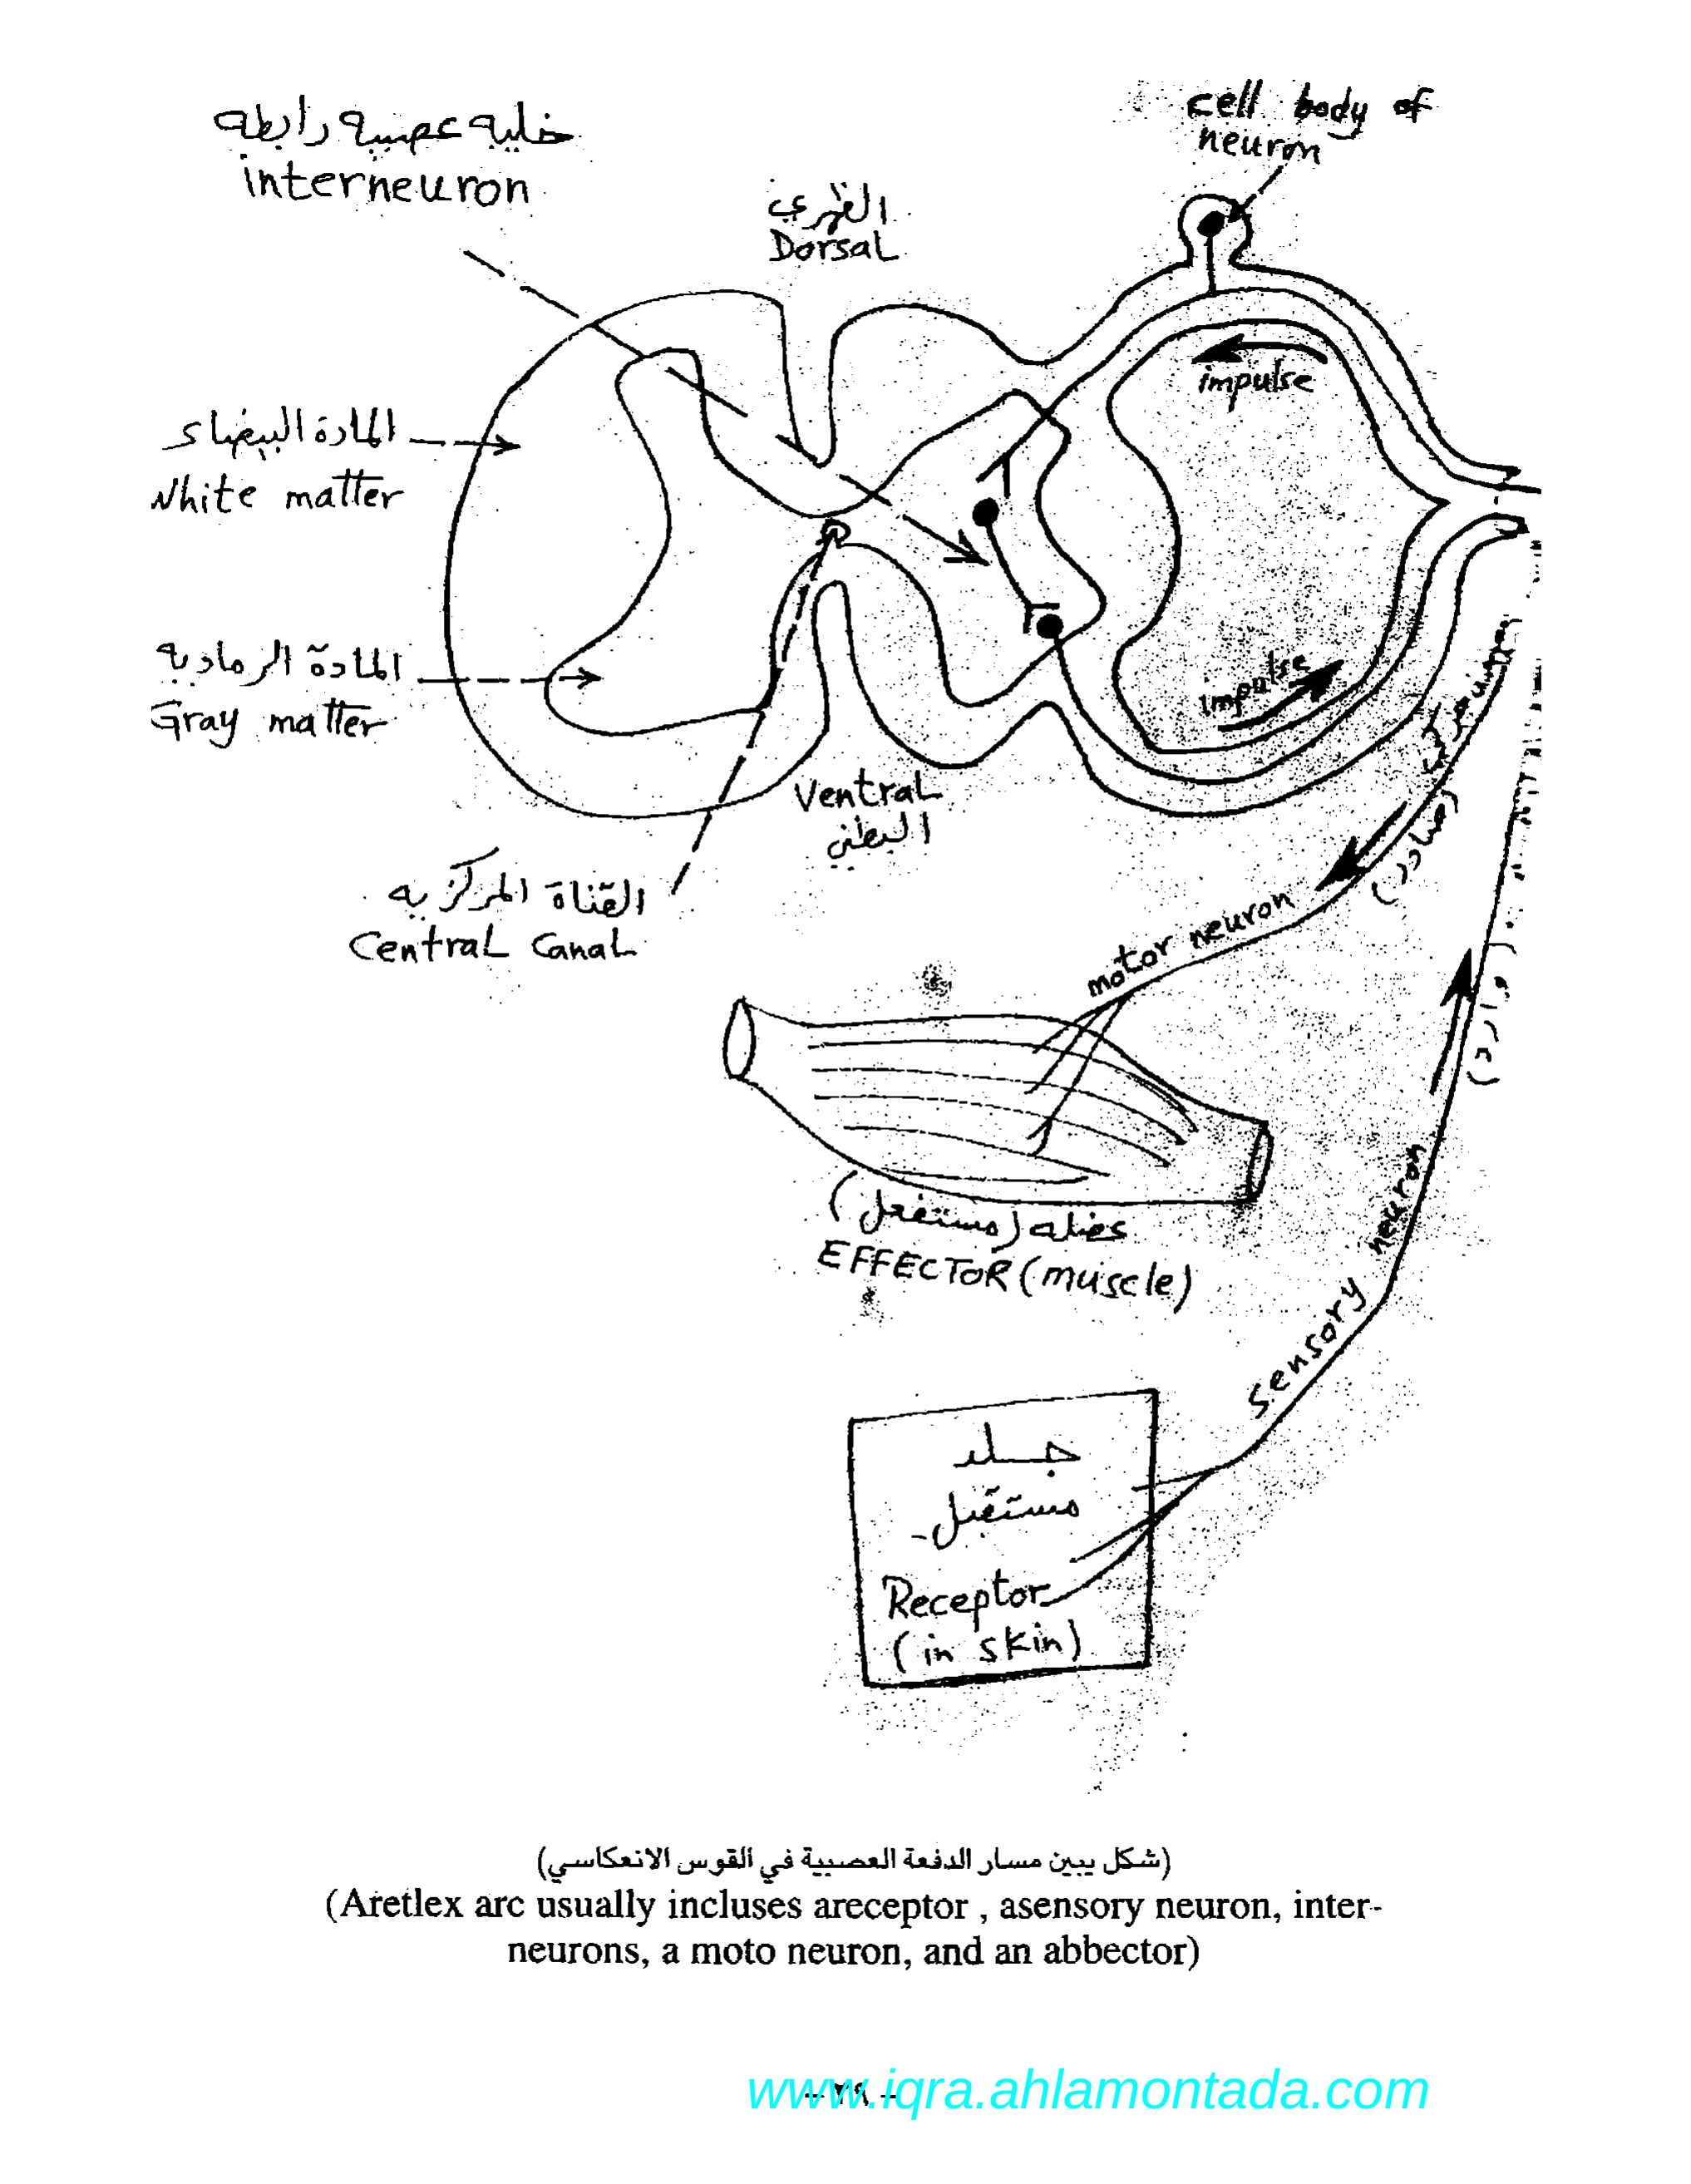 خليه عصبية رابطه
interneuron
cell body of
neuron
الظهري
Dorsal
impulse
المادة البيضاء
White matter
المادة الرماديه
Gray matter
impulse
Ventral
البطني
(صادر)
القناة المركزيه
Central Canal
motor neuron
(وارد)
عضله (مستفعل)
EFFECTOR (muscle)
sensory neuron
جلد
مستقبل
Receptor
(in skin)
(شكل يبين مسار الدفعة العصبية في القوس الانعكاسي)
(Aretlex arc usually incluses areceptor , asensory neuron, inter-
neurons, a moto neuron, and an abbector)
- ٢٩ -
www.iqra.ahlamontada.com